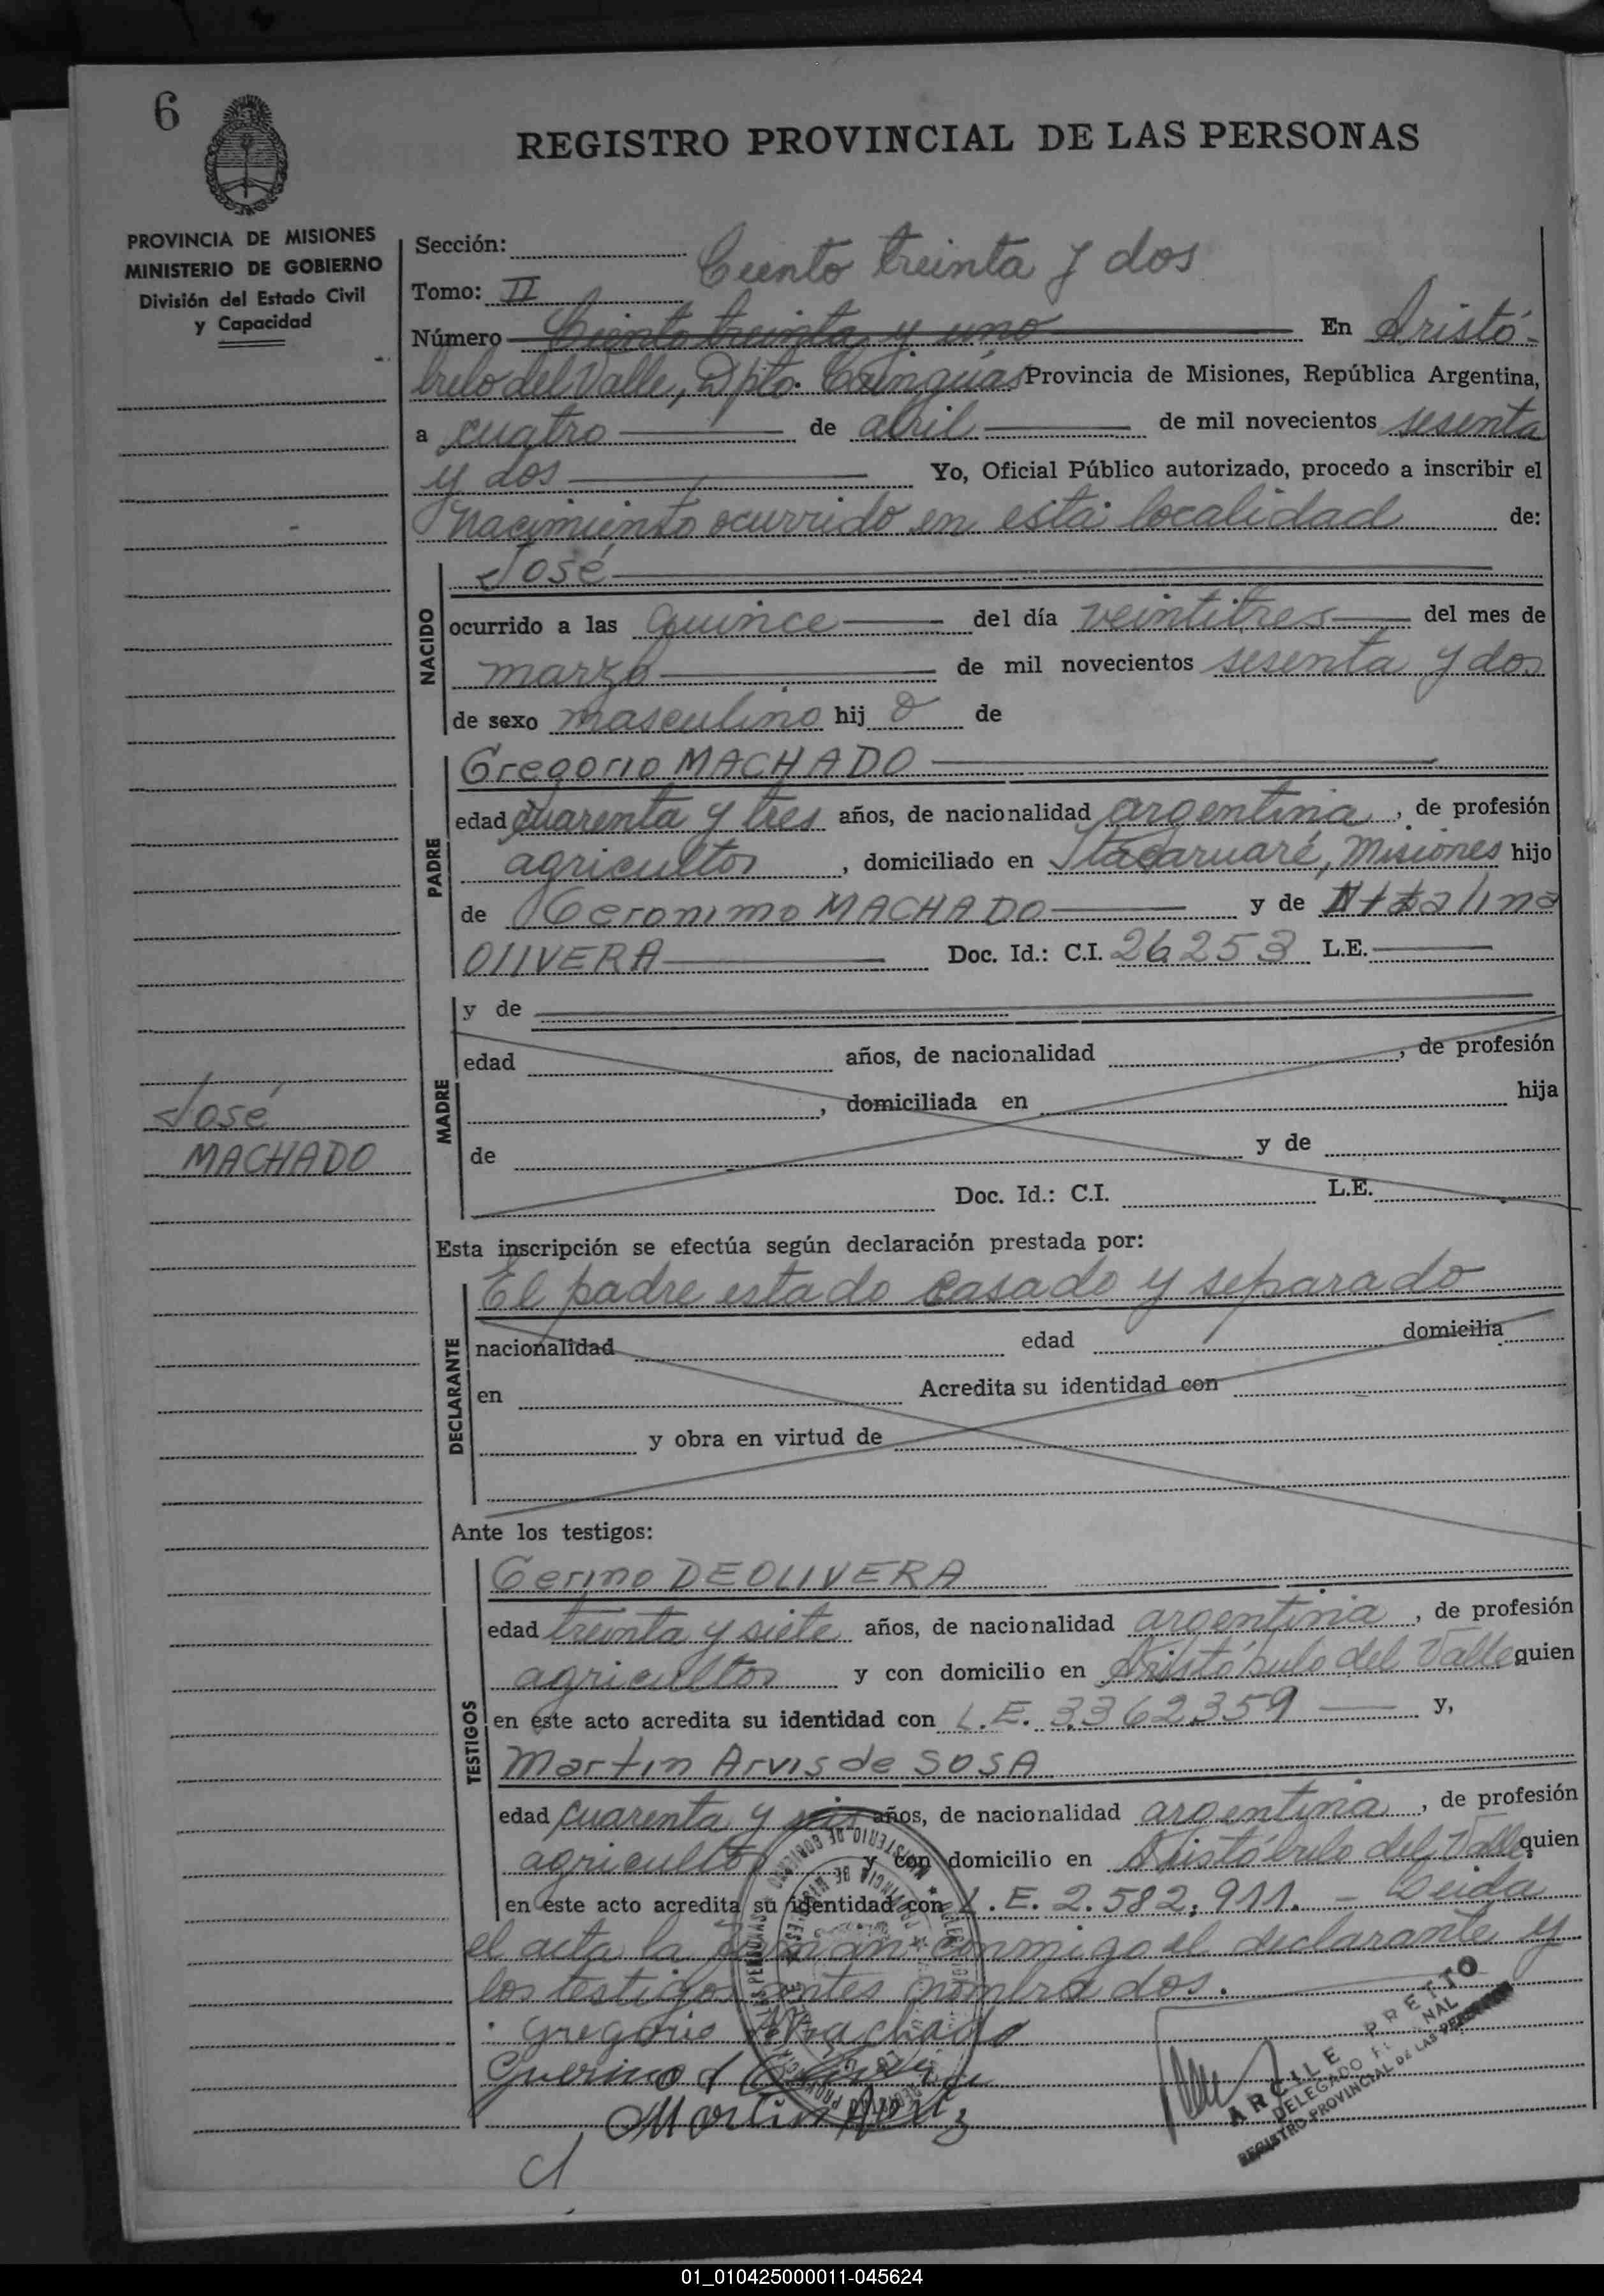 6
REGISTRO PROVINCIAL DE LAS PERSONAS
PROVINCIA DE MISIONES
MINISTERIO DE GOBIERNO
División del Estado Civil
y Capacidad
Sección:
Ciento treinta y dos
Tomo: II
Número Ciento treinta y uno En Aristó-
bulo del Valle, Dpto. Cainguás Provincia de Misiones, República Argentina,
a cuatro de abril de mil novecientos sesenta
y dos Yo, Oficial Público autorizado, procedo a inscribir el
nacimiento ocurrido en esta localidad de:
NACIDO
José
ocurrido a las quince del día veintitres del mes de
marzo de mil novecientos sesenta y dos
de sexo masculino hij o de
PADRE
Gregorio MACHADO
edad cuarenta y tres años, de nacionalidad argentina, de profesión
agricultor, domiciliado en Itacaruaré, Misiones hijo
de Geronimo MACHADO y de
OlIVERA Doc. Id.: C.I. 26253 L.E.
MADRE
y de
edad años, de nacionalidad , de profesión
, domiciliada en hija
de y de
Doc. Id.: C.I. L.E.
José
MACHADO
Esta inscripción se efectúa según declaración prestada por:
DECLARANTE
El padre estado casado y separado
nacionalidad edad domicilia
en Acredita su identidad con
y obra en virtud de
Ante los testigos:
TESTIGOS
DEOLIVERA
edad treinta y siete años, de nacionalidad argentina, de profesión
agricultor y con domicilio en Aristóbulo del Valle quien
en este acto acredita su identidad con L.E. 3.362.359 y,
Martin Arvis de SOSA
edad cuarenta y años, de nacionalidad argentina, de profesión
agricultor y con domicilio en Aristóbulo del Valle quien
en este acto acredita su identidad con L.E. 2.582.911. - Leida
el acta la firman conmigo el declarante y
los testigos antes nombrados.
Gregorio Machado
Martin
ARCILE PRETTO
DELEGADO
REGISTRO PROVINCIAL DE LAS PERSONAS
01_010425000011-045624